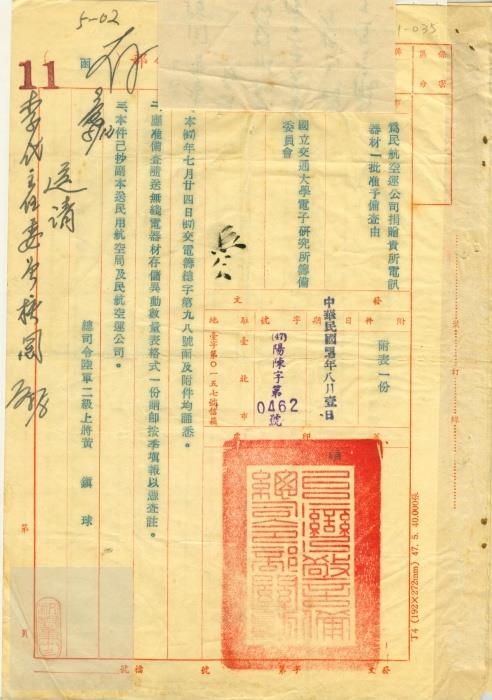 5-02
1-035
11
存
函
為民航空運公司捐贈貴所電訊
器材一批准予備查由
國立交通大學電子研究所籌備
委員會
附表一份
附
件
日
期
字
號
發
文
中華民國47年八月壹日
(47)陽陳字第
0462
號
駐
地
臺北市
臺字第〇一五七號信箱
一、本(47)年七月廿四日(47)交電籌總字第九八號函及附件均誦悉。
二、應准備查隨送無綫電器材存儲異動數量表格式一份請卽按季填報以憑查註。
三、本件已抄副本送民用航空局及民航空運公司。
總司令陸軍二級上將黃 鎮 球
送請
李代主任委員核閱
臺灣警備總司令部關防
第
頁
丁4 (192×272mm) 47. 5. 40,000張
發文
字第
號
檔號